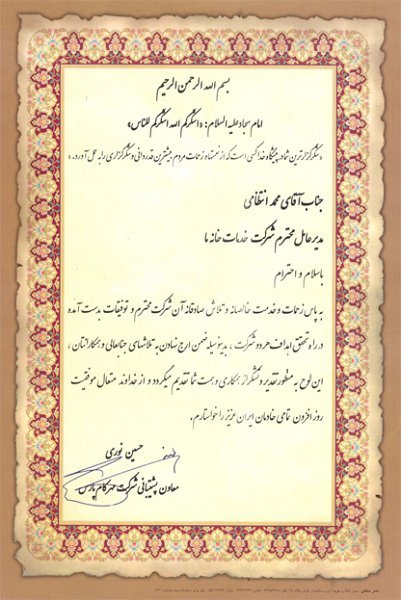 بسم الله الرحمن الرحیم
امام سجاد علیه السلام: «اشکرکم الله اشکرکم للناس»
«شکرگزارترین شما در پیشگاه خدا کسی است که از نعمتها و زحمات مردم بیشترین قدردانی و شکرگزاری را به عمل آورد.»
جناب آقای محمد انتظامی
مدیرعامل محترم شرکت خدمات خانه ما
باسلام و احترام
به پاس زحمات و خدمت خالصانه و تلاش صادقانه آن شرکت محترم و توفیقات بدست آمده
در راه تحقق اهداف هر دو شرکت ، بدینوسیله ضمن ارج نهادن به تلاشهای جنابعالی و همکارانتان ،
این لوح به منظور تقدیر و تشکر از همکاری و همت شما تقدیم میگردد و از خداوند متعال موفقیت
روز افزون تمامی خادمان ایران عزیز را خواستارم.
حسین نوری
معاون پشتیبانی شرکت مهرکام پارس